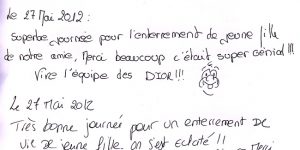 Le 27 Mai 2012 :
Superbe journée pour l'enterrement de jeune fille
de notre amie, Merci beaucoup c'était super génial !!!
Vive l'équipe des DIOR !!!
Le 27 Mai 2012
Très bonne journée pour un enterrement DE
vie de jeune fille on s'est eclaté !!
Merci